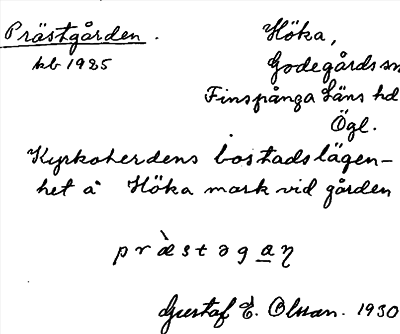 Prästgården. Höka,
kb 1985 Godegårds sn
Finspånga Läns hd
Ögl.
Kyrkoherdens bostadslägen-
het å Höka mark vid gården
præ̀stəga̲ŋ
Gustaf E. Olsson. 1930